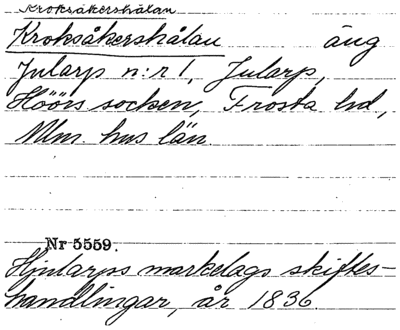 Kroksåkershålan
Kroksåkershålan äng
Jularp n:r 1, Jularp,
Höörs socken, Frosta hd,
Mlm. hus län.
Nr 5559.
Hjularps markelags skiftes-
handlingar, år 1836.